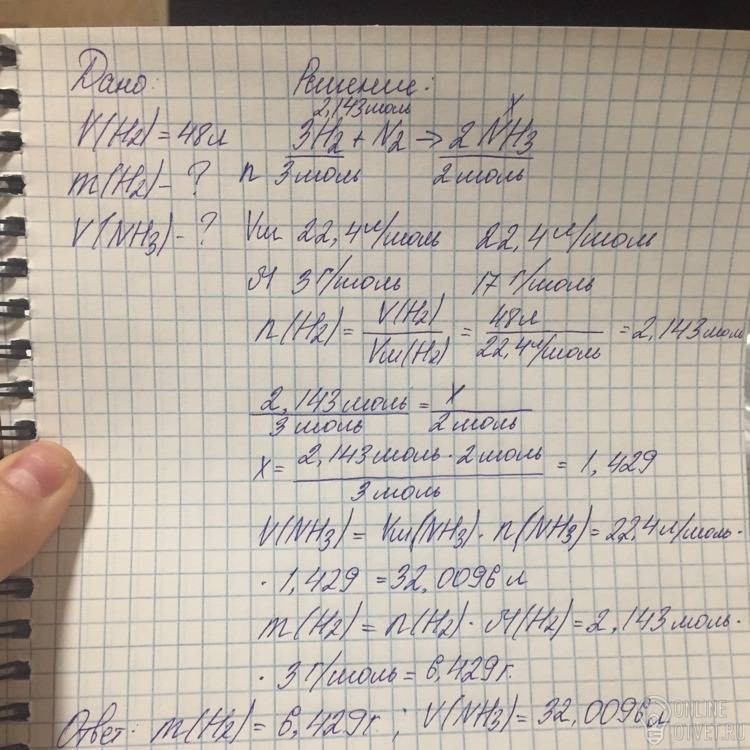 Дано: Решение:
2,143 моль x
V(H2)=48л 3H2 + N2 => 2NH3
m(H2)-? n 3 моль 2 моль
V(NH3)-? Vm 22,4л/моль 22,4л/моль
M 3г/моль 17г/моль
n(H2) = V(H2)/Vm(H2) = 48л/22,4л/моль = 2,143 моль
2,143 моль/3 моль = x/2 моль
x = 2,143 моль · 2 моль/3 моль = 1,429
V(NH3) = Vm(NH3) · n(NH3) = 22,4л/моль ·
· 1,429 = 32,0096 л
m(H2) = n(H2) · M(H2) = 2,143 моль ·
· 3 г/моль = 6,429г.
Ответ: m(H2) = 6,429г ; V(NH3) = 32,0096 л
ONLINE
OTVET.RU